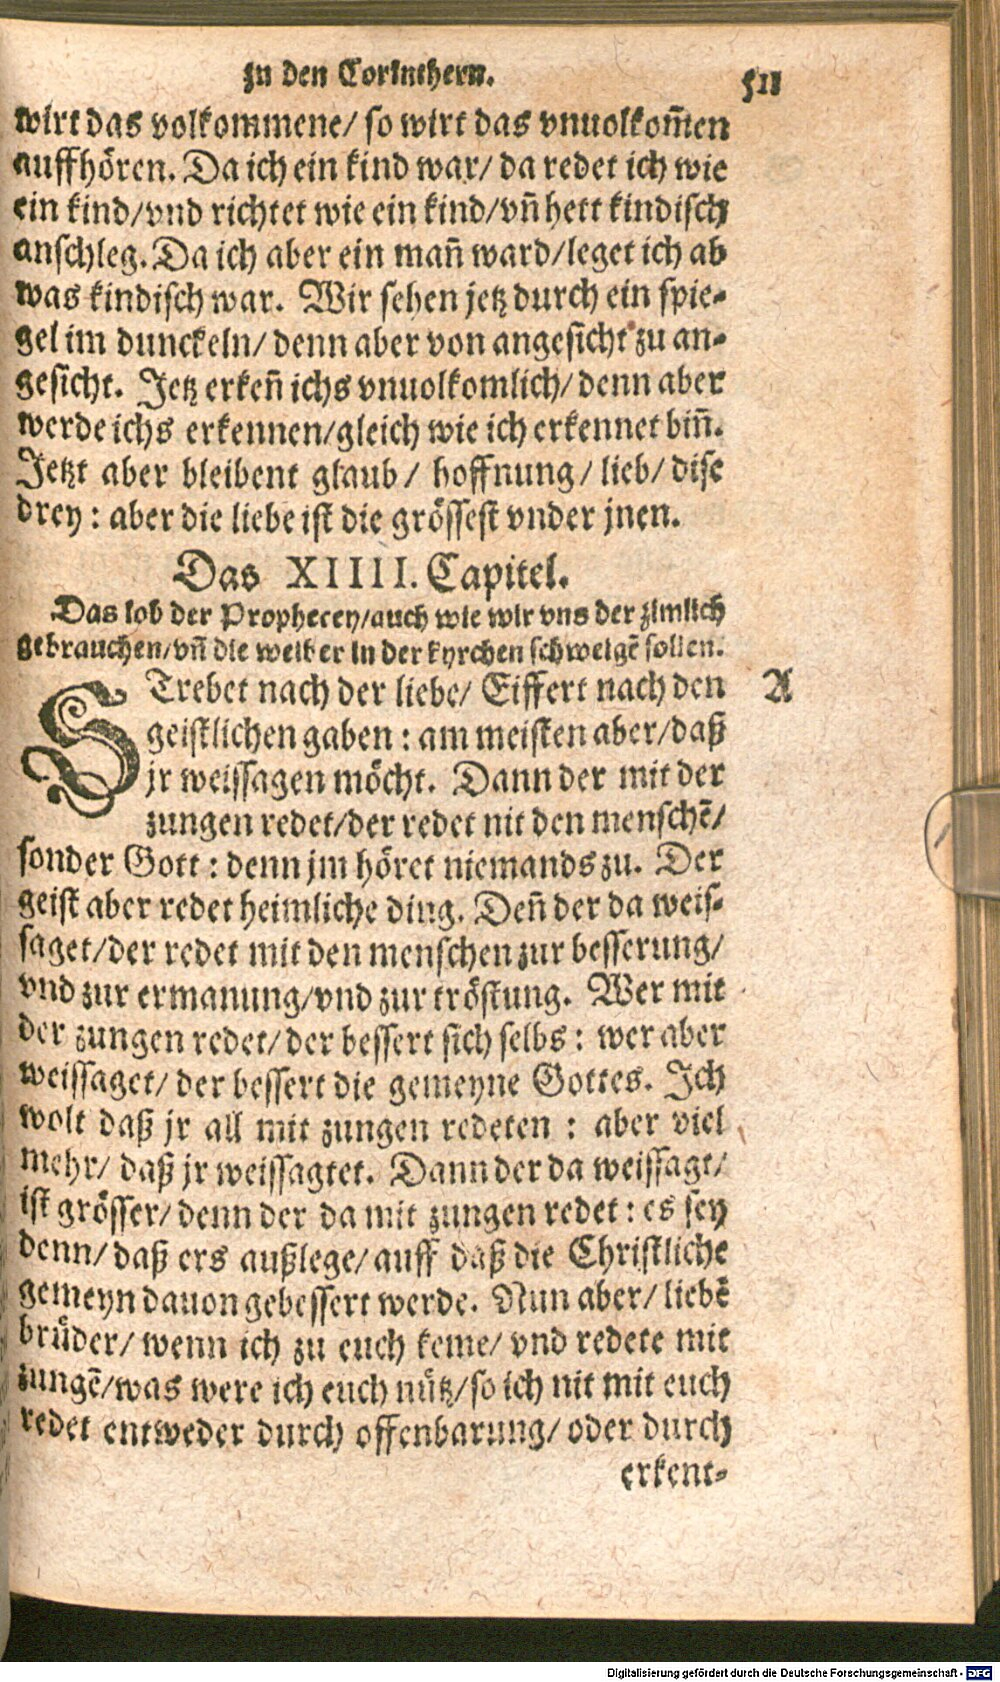 zu den Corinthern. 511
wirt das volkommene/ so wirt das vnuolkom̃en
auffhören. Da ich ein kind war/ da redet ich wie
ein kind/vnd richtet wie ein kind/vñ hett kindisch
anschleg. Da ich aber ein mañ ward/leget ich ab
was kindisch war. Wir sehen jetz durch ein spie-
gel im dunckeln/ denn aber von angesicht zu an-
gesicht. Jetz erkeñ ichs vnuolkomlich/ denn aber
werde ichs erkennen/gleich wie ich erkennet biñ.
Jetzt aber bleibent glaub/ hoffnung/ lieb/ dise
drey: aber die liebe ist die grössest vnder jnen.
Das XIIII. Capitel.
Das lob der Prophecey/auch wie wir vns der zimlich
gebrauchen/vñ die weiber in der kyrchen schweigẽ sollen.
STrebet nach der liebe/ Eiffert nach den A
geistlichen gaben: am meisten aber/daß
jr weissagen möcht. Dann der mit der
zungen redet/der redet nit den menschẽ/
sonder Gott: denn jm höret niemands zu. Der
geist aber redet heimliche ding. Deñ der da weis-
saget/der redet mit den menschen zur besserung/
vnd zur ermanung/vnd zur tröstung. Wer mit
der zungen redet/der bessert sich selbs: wer aber
weissaget/ der bessert die gemeyne Gottes. Ich
wolt daß jr all mit zungen redeten: aber viel
mehr/ daß jr weissagtet. Dann der da weissagt/
ist grösser/denn der da mit zungen redet: es sey
denn/daß ers außlege/auff daß die Christliche
gemeyn dauon gebessert werde. Nun aber/ liebẽ
brüder/ wenn ich zu euch keme/ vnd redete mit
zungẽ/was were ich euch nütz/so ich nit mit euch
redet entweder durch offenbarung/ oder durch
erkent-
Digitalisierung gefördert durch die Deutsche Forschungsgemeinschaft - DFG